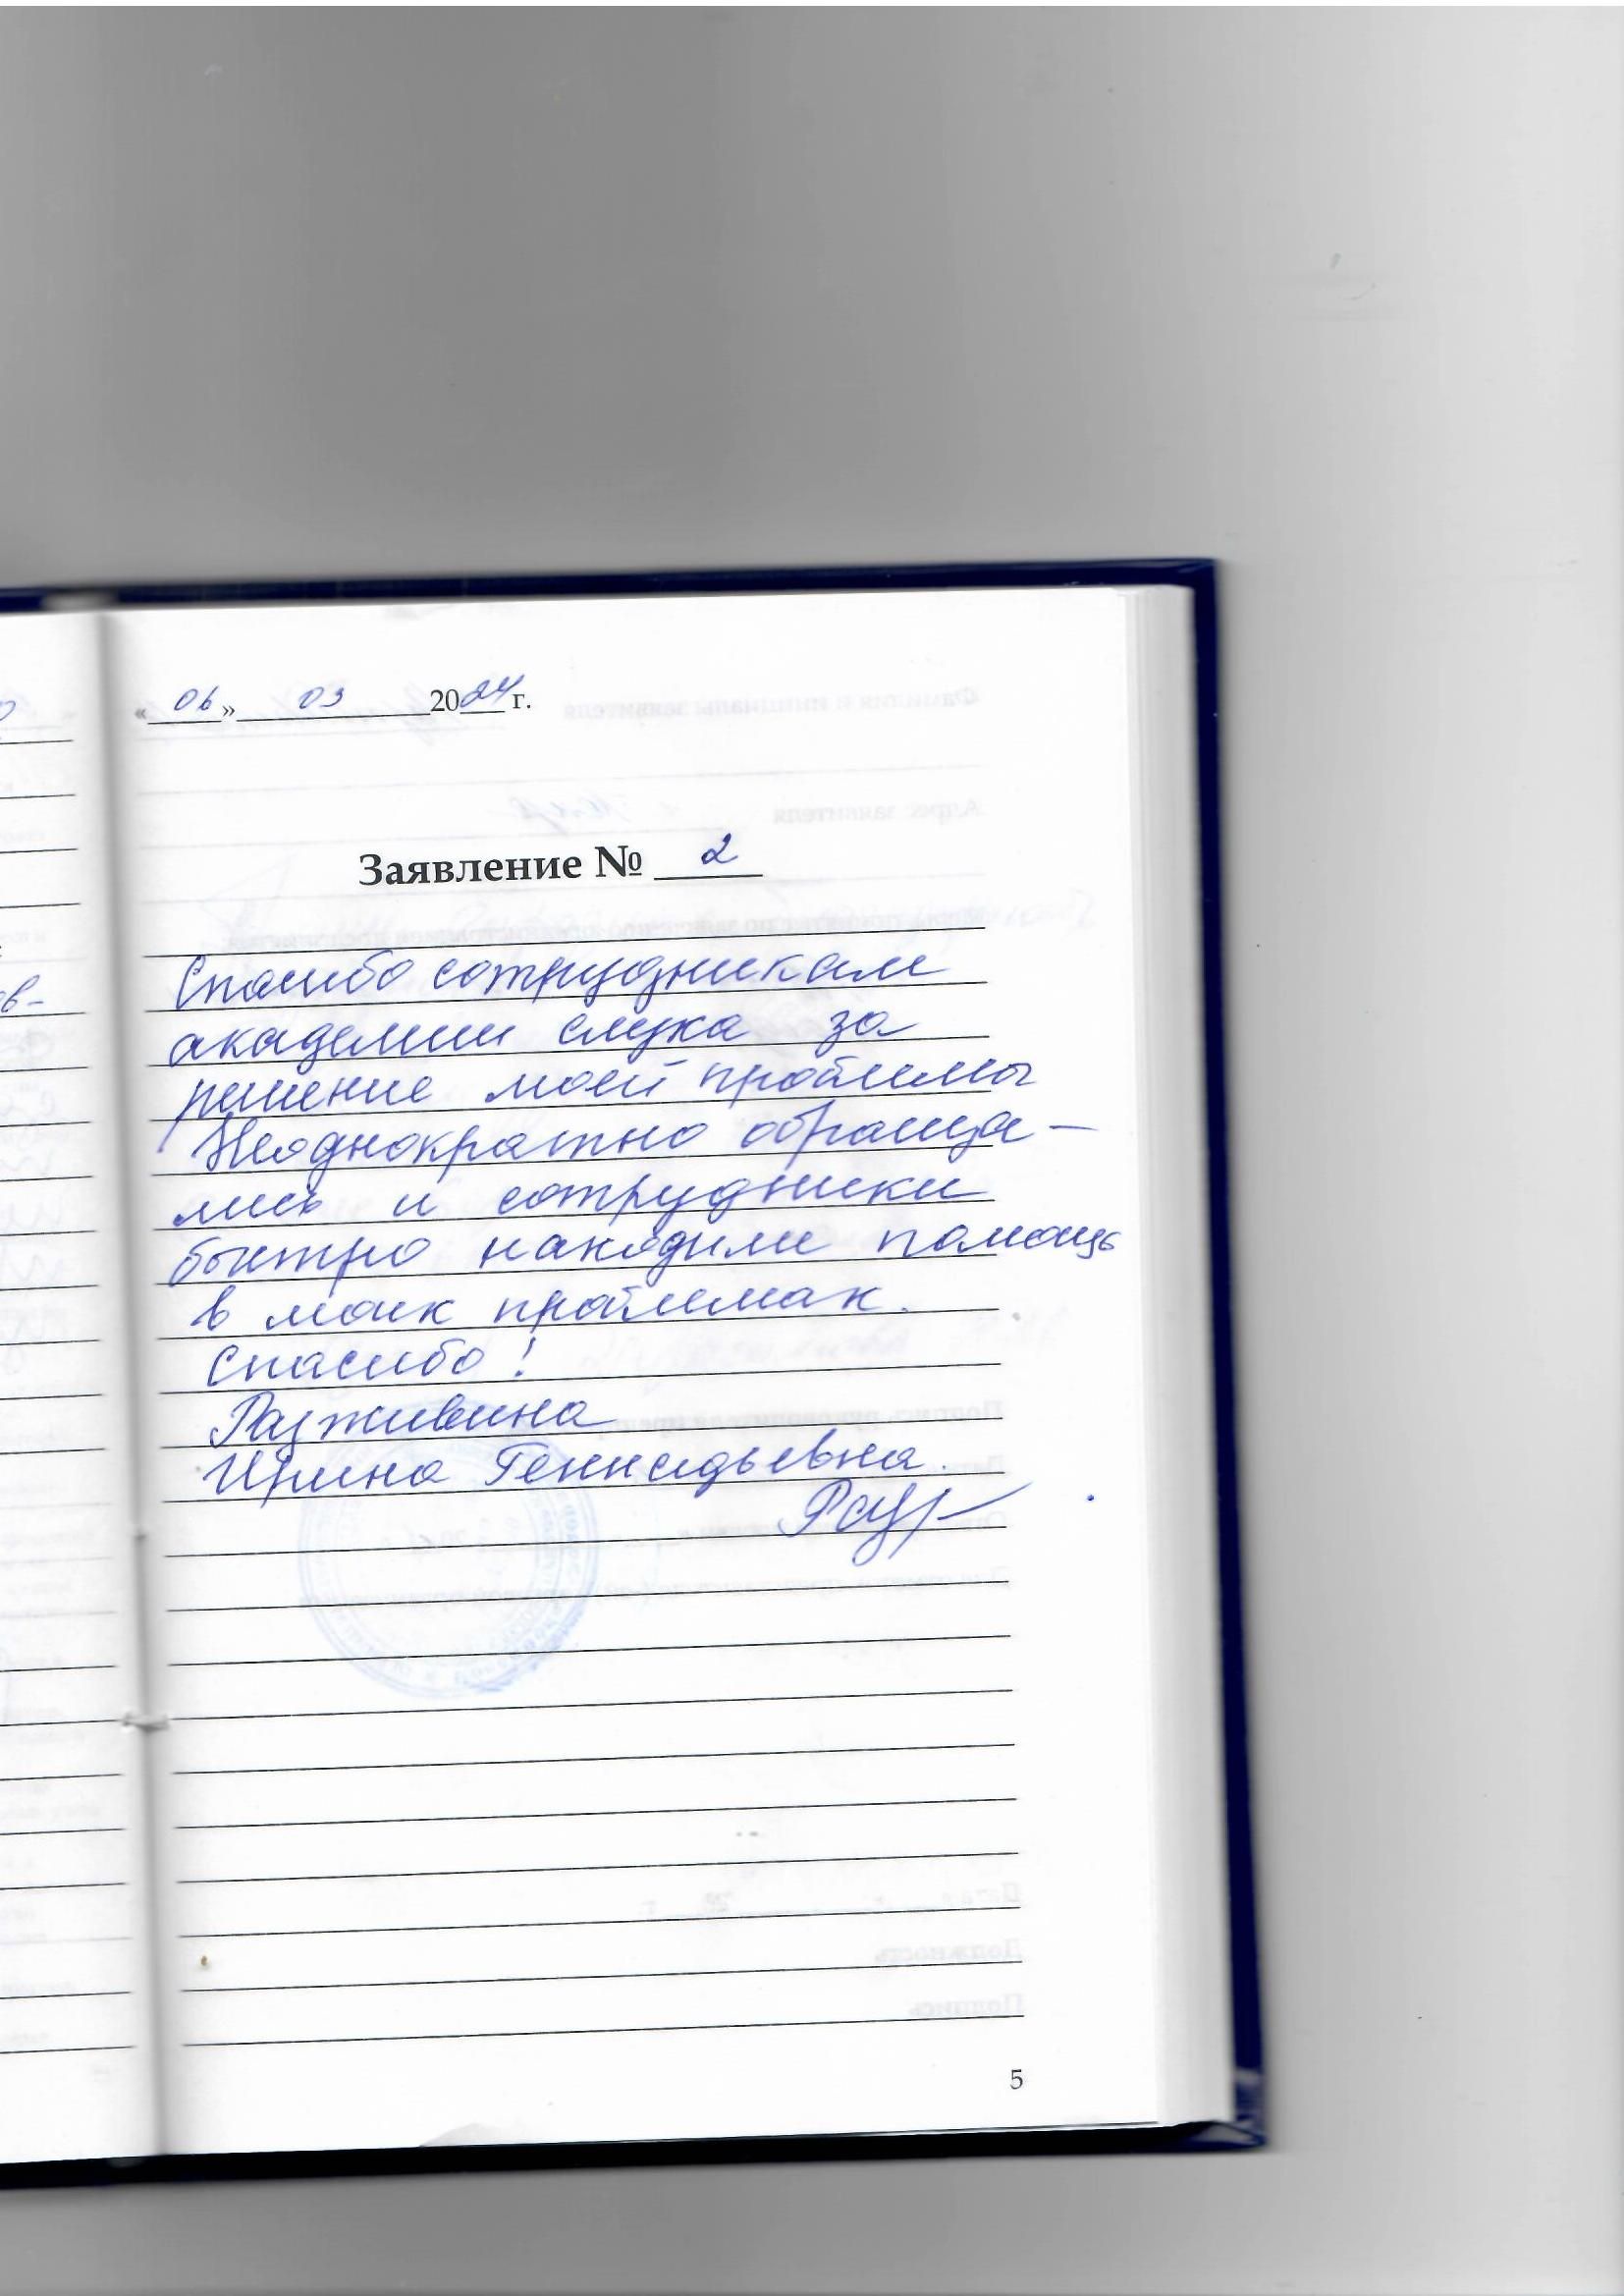 «06» 03 2024 г.
Заявление № 2
Спасибо сотрудникам
академии слуха за
решение моей проблемы
Неоднократно обраща-
лись и сотрудники
быстро находили помощь
в моих проблемах.
Спасибо!
Разживина
Ирина Геннадьевна.
5